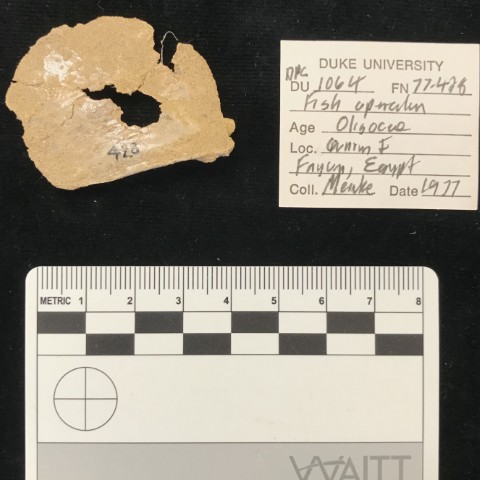 428
DUKE UNIVERSITY
DPC
DU 1064 FN 77-428
Fish operculum
Age Oligocene
Loc. Quarry I
Fayum, Egypt
Coll. Meuke Date 1977
METRIC 1 2 3 4 5 6 7 8
WAITT